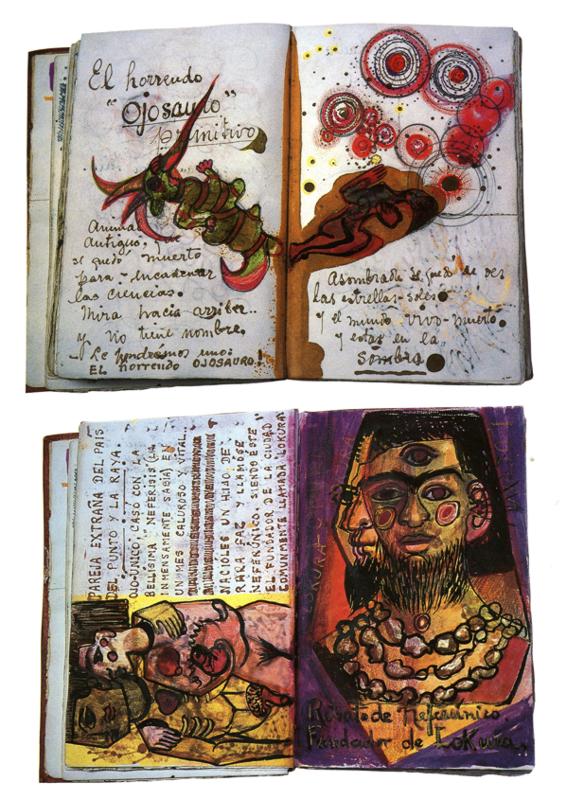 El horrendo
"Ojosauro"
primitivo
Animal
antiguo, que
se quedó muerto
para encadenar
las ciencias.
Mira hacia arriba..
y no tiene nombre.
Le pondremos uno:
EL horrendo OJOSAURO!
Asombrada se quedó de ver
las estrellas-soles
y el mundo vivo-muerto
y estar en la
sombra
PAREJA EXTRAÑA DEL PAIS
DEL PUNTO Y LA RAYA.
OJO-ÚNICO, CASÓ CON LA
BELLÍSIMA NEFERISIS (LA
INMENSAMENTE SABIA) EN
UN MES CALUROSO Y VITAL..
NACIOLES UN HIJO DE
RARA FAZ Y LLAMOSE
NEFERÚNICO, SIENDO ÉSTE
EL FUNDADOR DE LA CIUDAD
COMUNMENTE LLAMADA LOKURA"
Retrato de Neferúnico.
Fundador de Lokura.